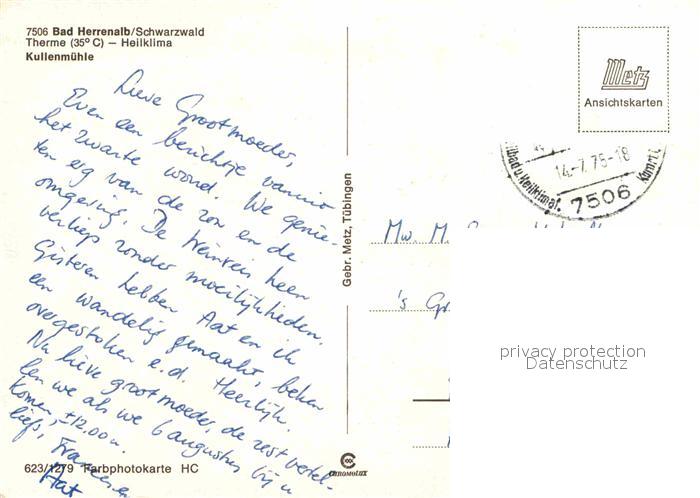 7506 Bad Herrenalb/Schwarzwald
Therme (35° C) — Heilklima
Kullenmühle
Lieve Grootmoeder,
Even een berichtje vanuit
het zwarte woud. We genie-
ten erg van de zon en de
omgeving. De treinreis heen
verliep zonder moeilijkheden.
Gisteren hebben Aat en ik
een wandeling gemaakt, beken
overgestoken e.d. Heerlijk.
Nu lieve grootmoeder, de rest vertel-
len we als we 6 augustus bij u
komen, ±12.00 u.
liefs,
Aat
623/1279 Farbphotokarte HC
Gebr. Metz, Tübingen
CHROMOLUX
Metz
Ansichtskarten
14.-7.76-18
7506
Mw. M.
's Gr
privacy protection
Datenschutz